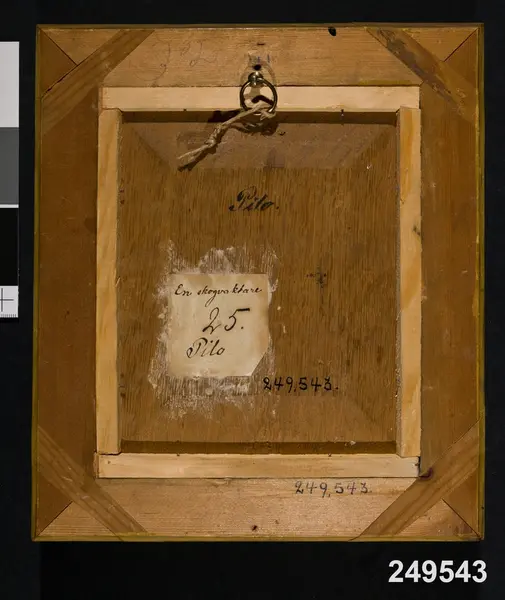 Pilo.
En skogvaktare
25.
Pilo
249,543.
249,543.
249543